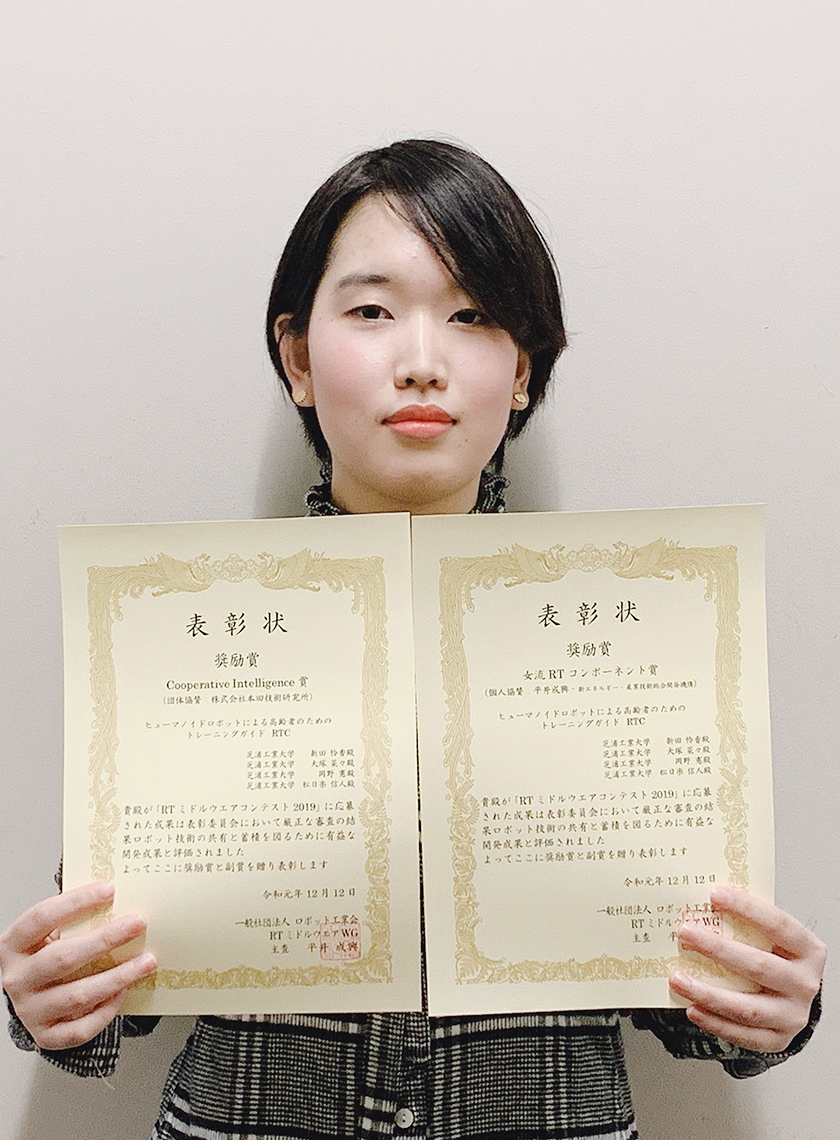 表彰状
奨励賞
Cooperative Intelligence 賞
(団体協賛：株式会社本田技術研究所)
ヒューマノイドロボットによる高齢者のための
トレーニングガイド RTC
芝浦工業大学 新田 怜香殿
芝浦工業大学 大塚 菜々殿
芝浦工業大学 岡野 憲殿
芝浦工業大学 松日楽 信人殿
貴殿が「RTミドルウエアコンテスト2019」に応募
された成果は表彰委員会において厳正な審査の結
果ロボット技術の共有と蓄積を図るために有益な
開発成果と評価されました
よってここに奨励賞と副賞を贈り表彰します
令和元年12月12日
一般社団法人 ロボット工業会
RTミドルウエアWG
主査 平井 成興
表彰状
奨励賞
女流RTコンポーネント賞
(個人協賛 平井成興・新エネルギー・産業技術総合開発機構)
ヒューマノイドロボットによる高齢者のための
トレーニングガイド RTC
芝浦工業大学 新田 怜香殿
芝浦工業大学 大塚 菜々殿
芝浦工業大学 岡野 憲殿
芝浦工業大学 松日楽 信人殿
貴殿が「RTミドルウエアコンテスト2019」に応募
された成果は表彰委員会において厳正な審査の結
果ロボット技術の共有と蓄積を図るために有益な
開発成果と評価されました
よってここに奨励賞と副賞を贈り表彰します
令和元年12月12日
一般社団法人 ロボット工業会
RTミドルウエアWG
主査 平